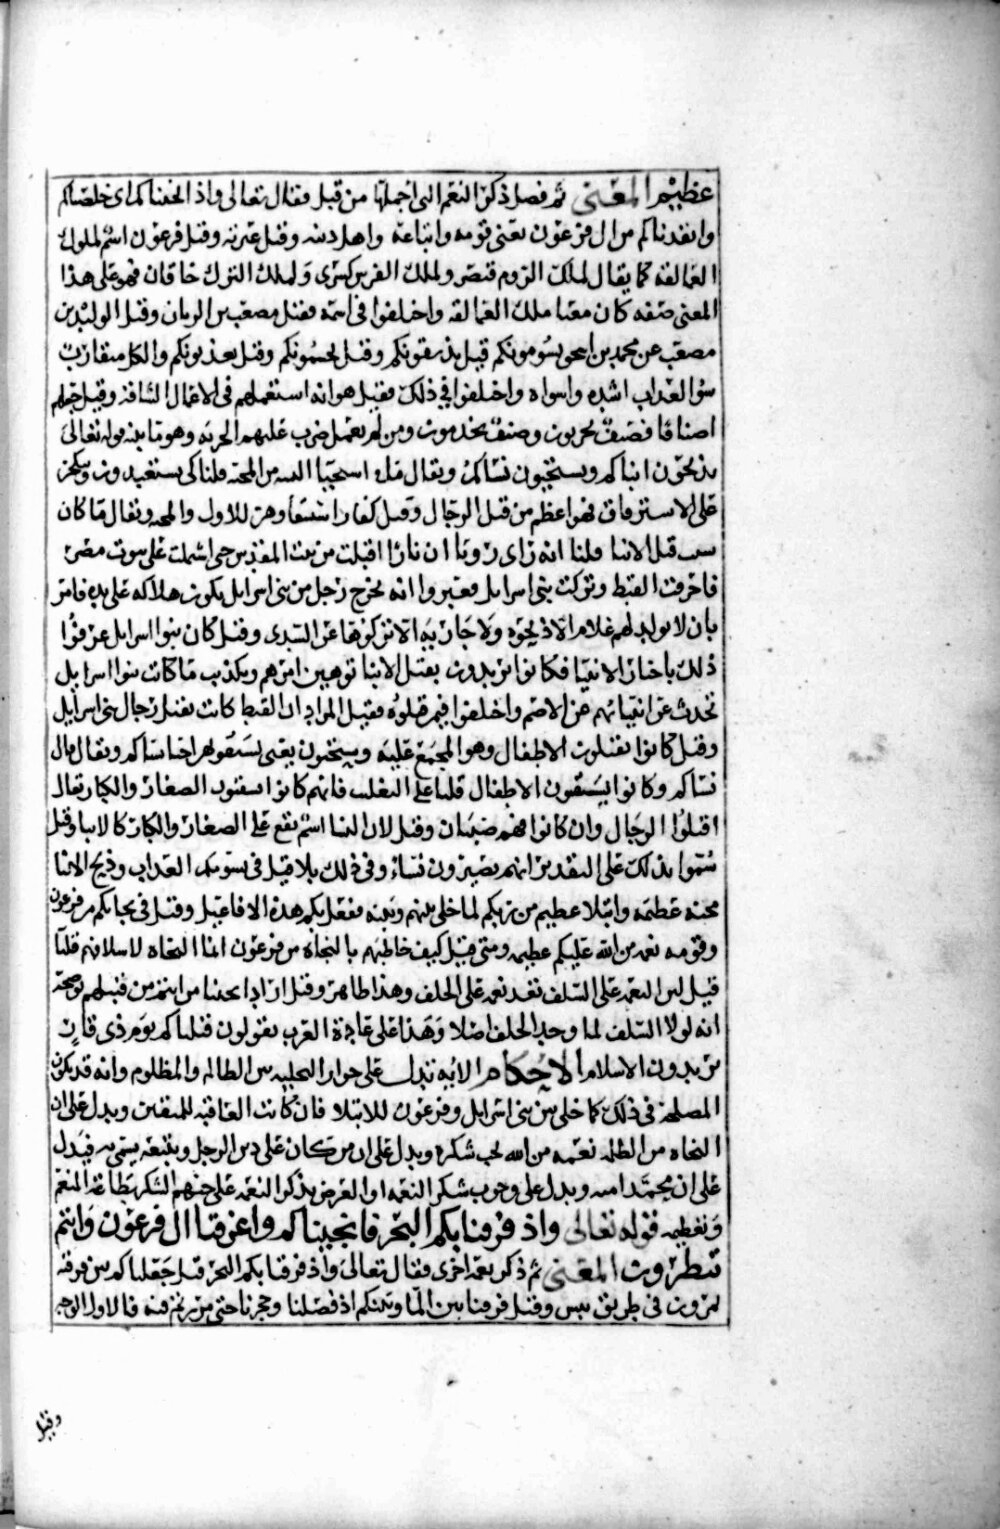 عظيم المعنى ثم فصل ذكر النعم التي اجملها من قبل فقال تعالى واذ انجيناكم اي خلصناكم
وانقذناكم من ال فرعون يعنى قومه واتباعه واهل دينه وقيل عترته وقيل فرعون اسم لملوك
العمالقه كما يقال لملك الروم قيصر ولملك الفرس كسرى ولملك الترك خاقان فهو على هذا
المعنى صفه كان معنا ملك العمالقه واختلفوا في اسمه فقيل مصعب بن الريان وقيل الوليد بن
مصعب عن محمد بن اسحق يسومونكم قيل يذيقونكم وقيل يجشمونكم وقيل يعذبونكم والكل متقارب
سؤ العذاب اشده واسواه واختلفوا في ذلك فقيل هو انه استعملهم في الاعمال الشاقة وقيل جعلهم
اصنافا فصنف يحرثون وصنف يخدمون ومن لم يعمل ضرب عليهم الجزيه وهو ما بينه قوله تعالى
يذبحون ابناكم ويستحيون نساكم ويقال هل استحيا النسا من المحنه قلنا كي يستعبدون وينكحن
على الاسترقاق فهو اعظم من قتل الرجال وقيل كفار استبقاوهن للاول والمحنه ويقال ما كان
سبب قتل الابنا قلنا انه راى رويا ان نارا اقبلت من بيت المقدس حتى اشتملت على بيوت مصر
فاحرقت القبط وتركت بني اسرايل فعبروا انه يخرج رجل من بني اسرايل يكون هلاكه على يده فامر
بان لا يولد لهم غلام الا ذبحوه ولا جاريه الا تركوها عن السدي وقيل كان بنوا اسرايل عرفوا
ذلك باخبار الانبيا فكانوا يريدون بقتل الابنا توهين امرهم ويكذب ما كانت بنوا اسرايل
تحدث عن انبيائهم عن الامم واختلفوا فيمن قتلوه فقيل المراد ان القبط كانت تقتل رجال بني اسرايل
وقيل كانوا يقتلون الاطفال وهو المجمع عليه ويستحيون يعنى يستبقونهم احيا نساكم ويقال لم قال
نساكم وكانوا يستبقون الاطفال قلنا على التغليب فانهم كانوا يستبقون الصغار والكبار يقال
اقبلوا الرجال وان كانوا فيهم صبيان وقيل لان النسا اسم يقع على الصغار والكبار كالابنا وقيل
سموا بذلك على التقدير انهم يصيرون نساء وفي ذلكم بلا قيل في سومكم العذاب وذبح الابنا
محنه عظيمه وابتلا عظيم من ربكم لما خلى بينهم وبينه ففعل بكم هذه الافاعيل وقيل في نجاتكم من فرعون
وقومه نعمه من الله عليكم عظيمه ومتى قيل كيف خاطبهم بالنجاه من فرعون انما النجاه لاسلافهم قلنا
قيل لان النعمه على السلف تعد نعمه على الخلف وهذا ظاهر وقيل اراد انجينا من انتم من قبلهم توضحه
انه لولا السلف لما وجد الخلف اصلا وهذا على عادة العرب يقولون قتلناكم يوم ذي قار
يريدون الاسلام الاحكام الايه تدل على جواز التخليه بين الظالم والمظلوم وانه قد يكون
المصلحه في ذلك كما خلى بين بني اسرايل وفرعون للابتلا فان كانت العاقبه للمتقين ويدل على ان
النجاه من الظلمه نعمه من الله يجب شكره ويدل على ان من كان على دين الرجل ويتبعه يسمى به فيدل
على ان محمدا امته ويدل على وجوب شكر النعمه اذ الغرض بذكر النعمه على حثهم الشكر بطاعة المنعم
وتعظيمه قوله تعالى واذ فرقنا بكم البحر فانجيناكم واغرقنا ال فرعون وانتم
تنظرون المعنى ثم ذكر نعمه اخرى فقال تعالى واذ فرقنا بكم البحر قيل جعلناكم بين فرقه
تمرون في طريق يبس وقيل فرقنا بين الما وبينكم اذ فصلنا وحجرنا حتى مررتم فيه فالاول الوجه
وقيل